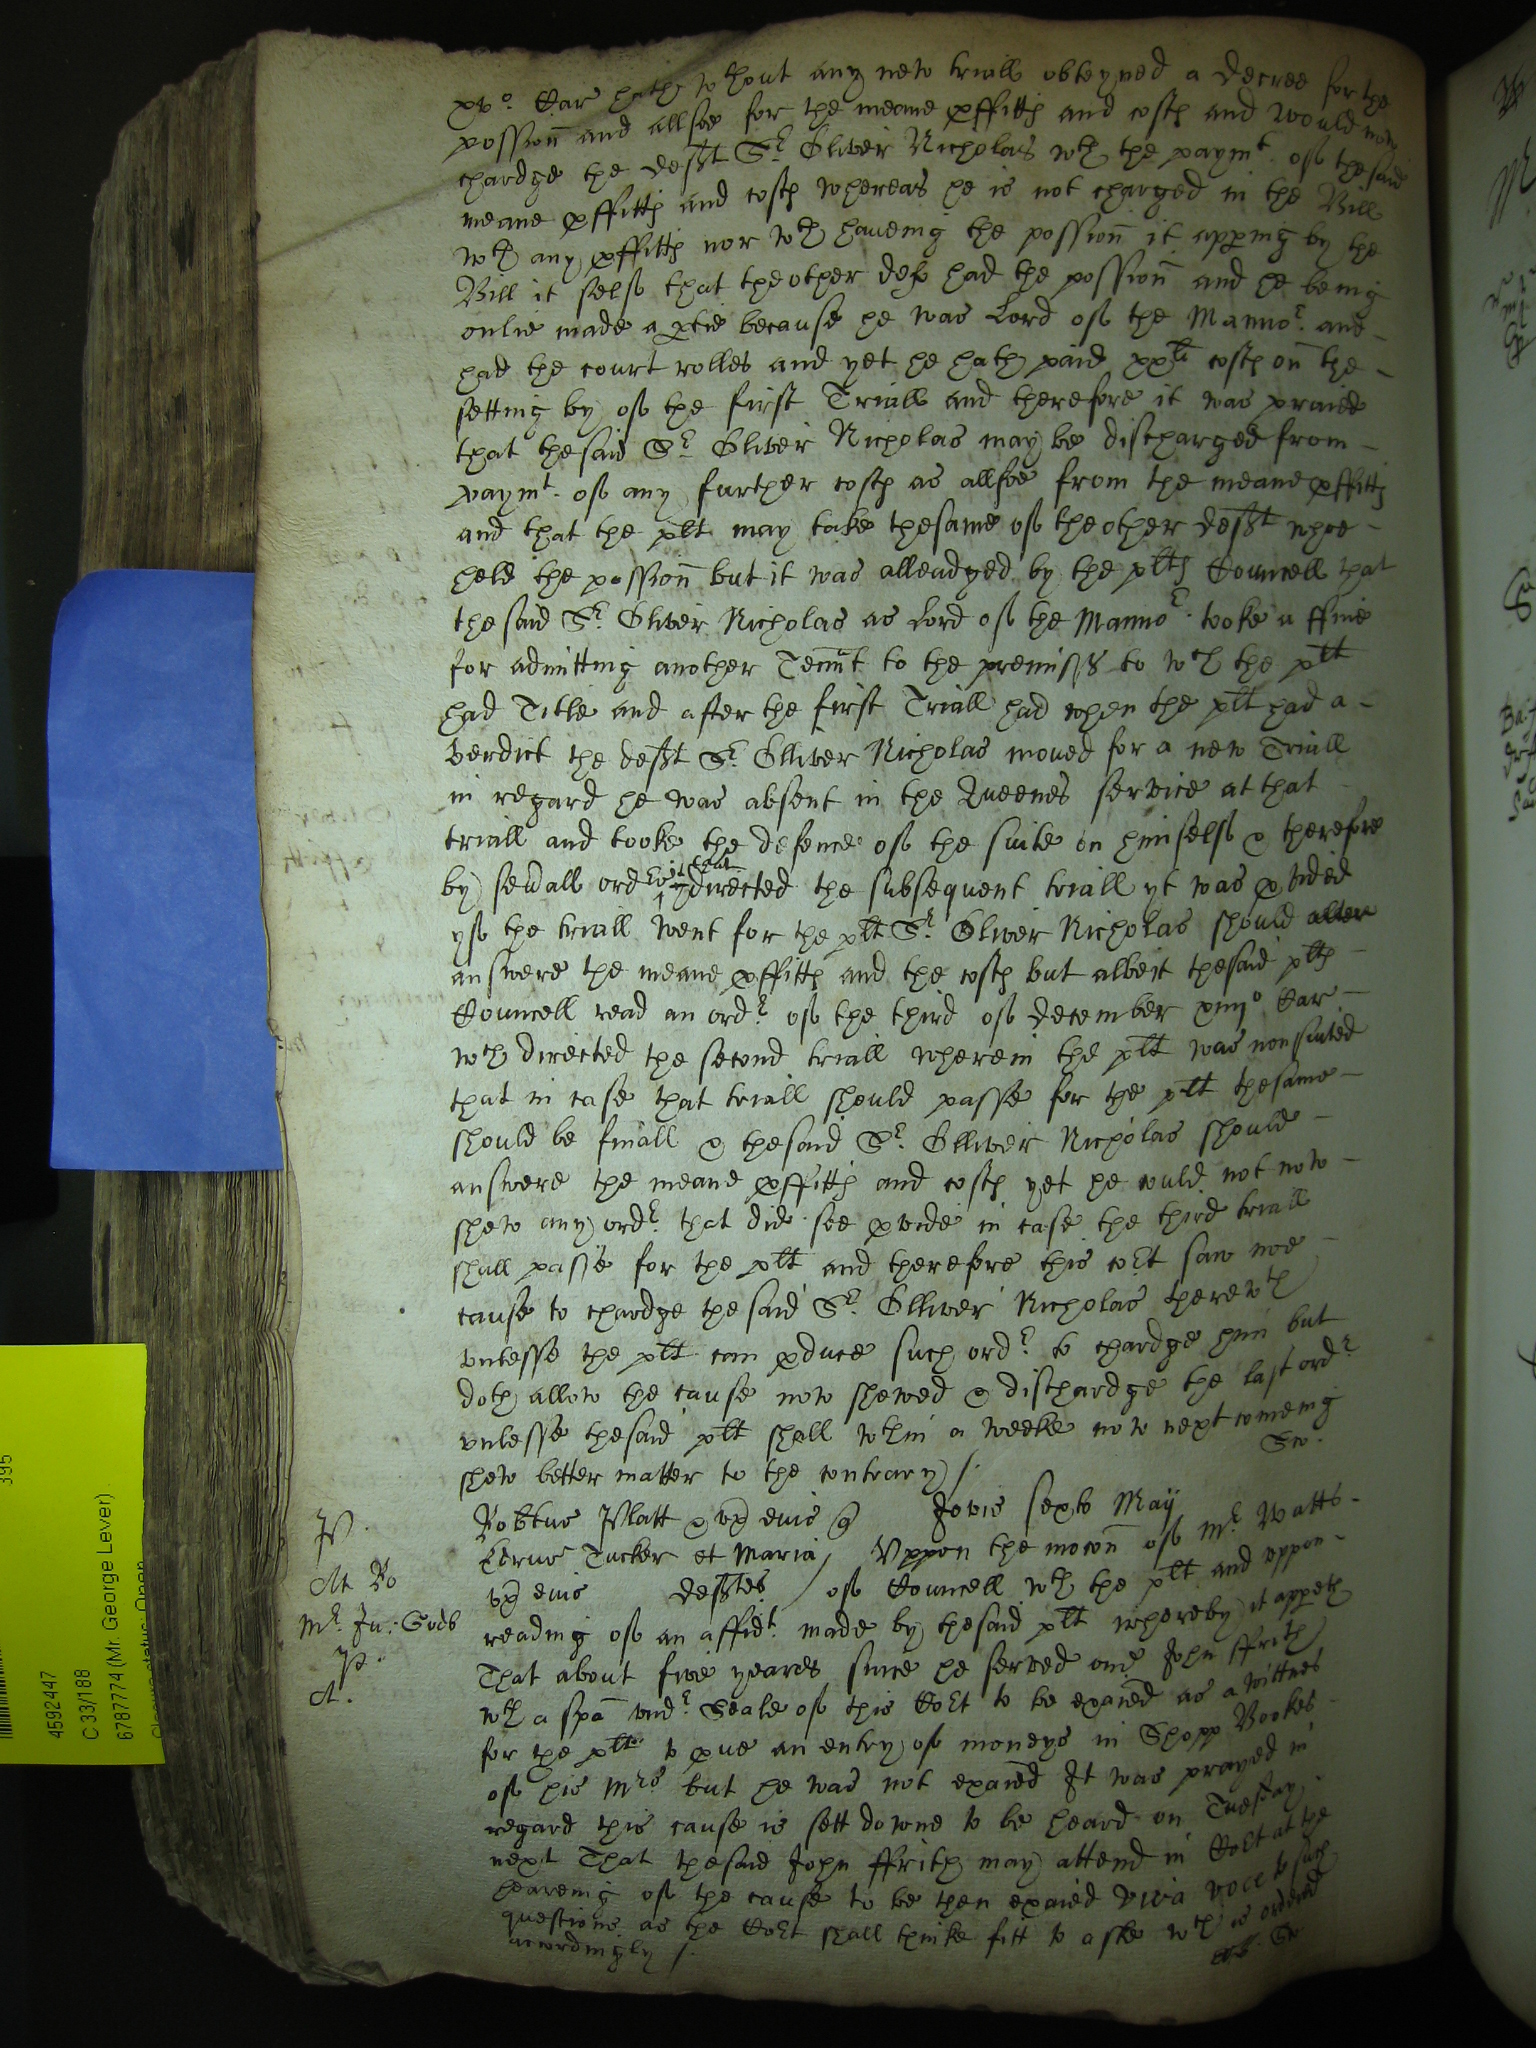 xvo. Car hath wthout any new triall obteyned a decree for the
possion and allsoe for the meane pffitts and costs and would now
chardge the defft Sr. Oliver Nicholas wth the paymt. of thesaid
meane pffitts and costs whereas he is not charged in the Bill
wth any pffitts nor wth haveing the possion it apping by the
Bill it self that theother deft had the possion and he being
onlie made a ptie because he was Lord of the Mannor. and
had the court rolles and yet he hath paid xxli costs on the
setting by of the first Triall and therefore it was praied
that thesaid Sr. Oliver Nicholas may be discharged from
paymt. of any further costs as allsoe from the meane pffitts
and that the plt may take thesame of theother defft whoe
held the possion but it was alleadged by the plts Councell that
thesaid Sr. Oliver Nicholas as Lord of the Mannor. tooke a ffine
for admitting another Tennt to the premisss to wch the plt
had Title and after the first Triall had when the plt had a
verdict the defft Sr. Olliver Nicholas moved for a new Triall
in regard he was absent in the Queenes service at that
triall and tooke the defence of the suite on himself & therefore
by sevall ord
directed the subsequent triall yt was pvided
yf the triall went for the plt Sr. Oliver Nicholas should
answere the meane pffitts and the costs but albeit thesaid plts
Councell read an ordr. of the third of December xiiijo Car
wch directed the second triall wherein the plt was nonsuited
that in case that triall should passe for the plt thesame
should be finall & thesaid Sr. Olliver Nicholas should
answere the meane pffitts and costs yet he could not now
shew any ordr. that did soe pvide in case the third triall
shall passe for the plt and therefore this cort saw noe
cause to chardge thesaid Sr. Olliver Nicholas therewth
unlesse the plt can pduce such ordr. to chardge him but
doth allow the cause now shewed & dischardge the last ordr.
unlesse thesaid plt shall wthin a weeke now next comeing
shew better matter to the contrary /.
Jovis sexto May
Robtus Platt & ux eius
Tucker et Maria
ux eius defftes
Uppon the mocon of Mr. Watts
of Councell wth the plt and uppon
reading of an affidt. made by thesaid plt whereby it appeth
That about five yeares since he served one John ffrith
wth a spa undr. Seale of this Cort to be exaied as a wittnes
for the plt to pve an entry of moneys in Shopp Bookes
of his Mrs but he was not exaied It was prayed in
regard this cause is sett downe to be heard on Tuesday
next That thesaid John ffrith may attend in Cort at the
heareing of the cause to be then exaied viva voce to such
questions as the Cort shall thinke fitt to aske wch is ordered
accordingly /.
395
4592447
C 33/188
6787774 (Mr. George Lever)
Closure status: Open